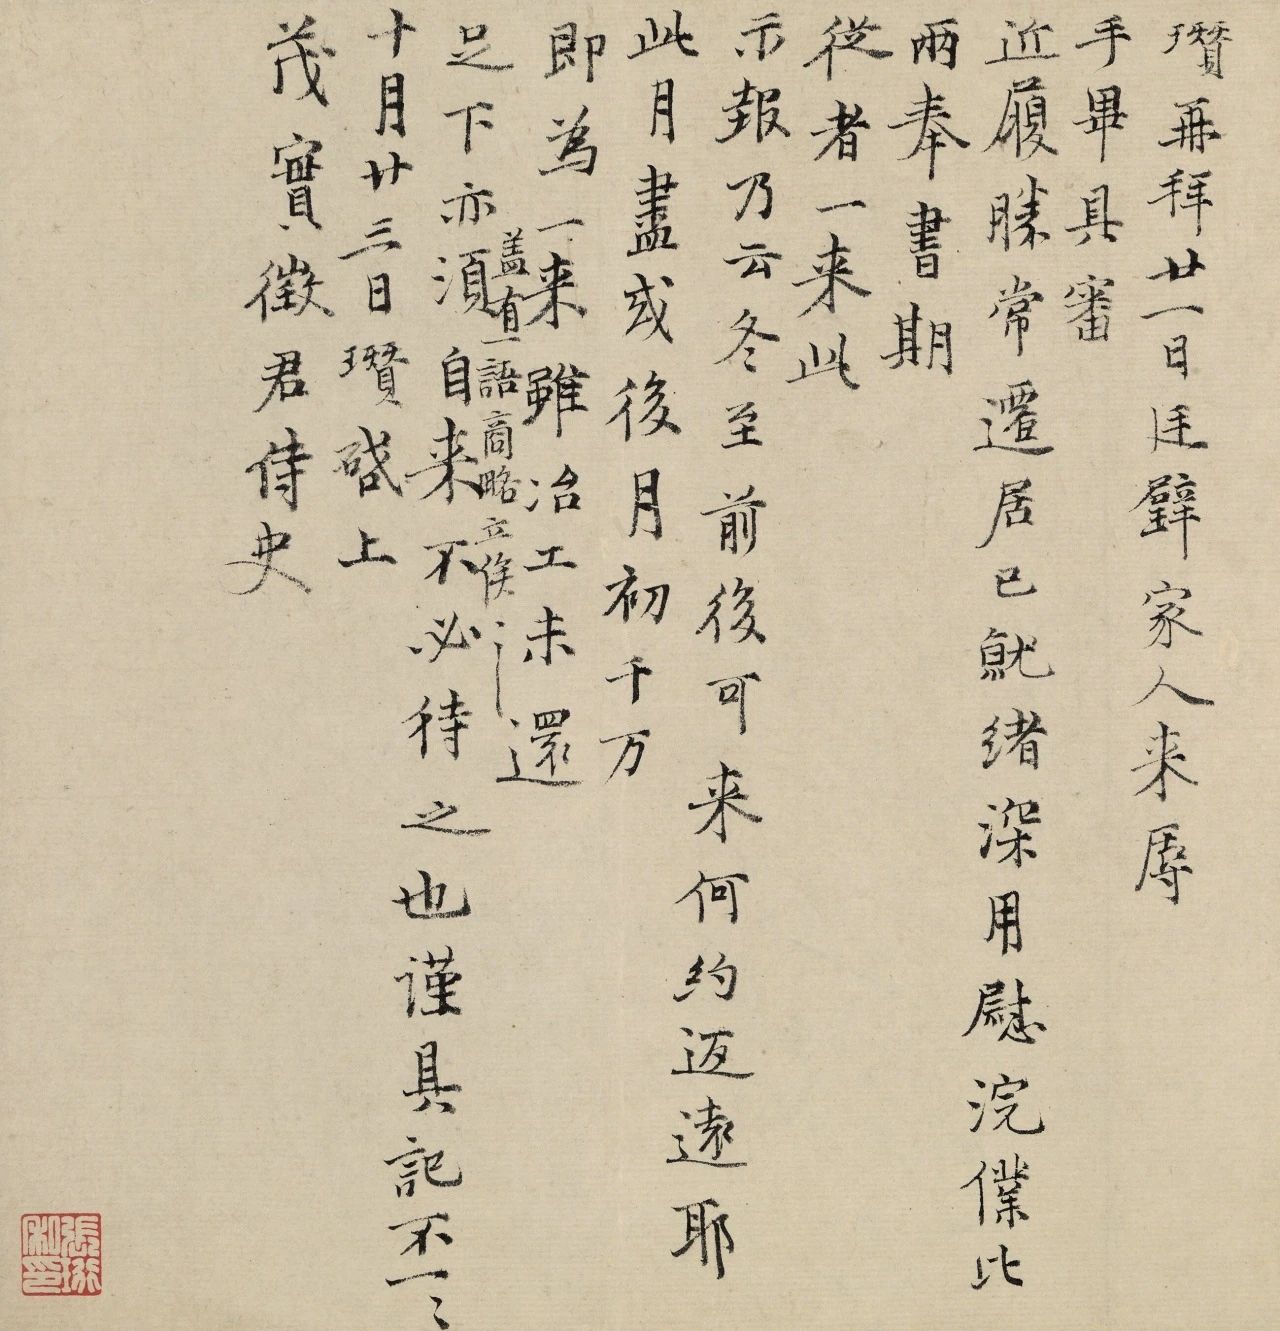 瓚再拜廿一日廷璧家人来辱
手畢具審
近履勝常遷居已就緒深用慰浣僕比
兩奉書期
從者一来此
示報乃云冬至前後可来何約迈遠耶
此月盡或後月初千万
即為一来雖冶工未還
盖有一語商略立俟之
足下亦須自来不必待之也謹具記不一〻
十月廿三日瓚啓上
茂實徵君侍史